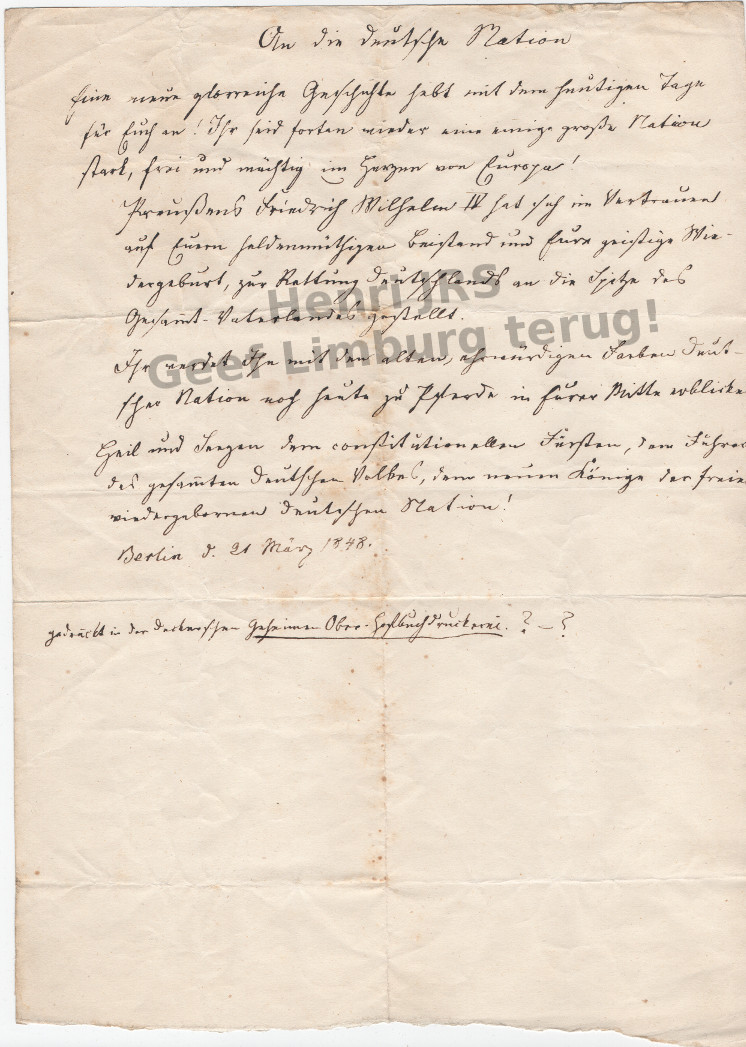 An die deutsche Nation
Eine neue glorreiche Geschichte hebt mit dem heutigen Tage
für Euch an! Ihr seid fortan wieder eine einige große Nation
stark, frei und mächtig im Herzen von Europa!
Preußens Friedrich Wilhelm IV hat sich im Vertrauen
auf Euern heldenmüthigen Beistand und Eure geistige Wie-
dergeburt, zur Rettung Deutschlands an die Spitze des
Gesam̅t-Vaterlandes gestellt.
Ihr werdet Ihn mit den alten, ehrwürdigen Farben Deut-
scher Nation noch heute zu Pferde in Eurer Mitte erblicke
Heil und Seegen dem constitutionellen Fürsten, dem Führer
des gesam̅ten Deutschen Volkes, dem neuen Könige der freie
wiedergebornen Deutschen Nation!
Berlin d. 21 März 1848.
gedruckt in der Deckerschen Geheimen Ober-Hofbuchdruckerei. ? – ?
HenriJRS
Geef Limburg terug!